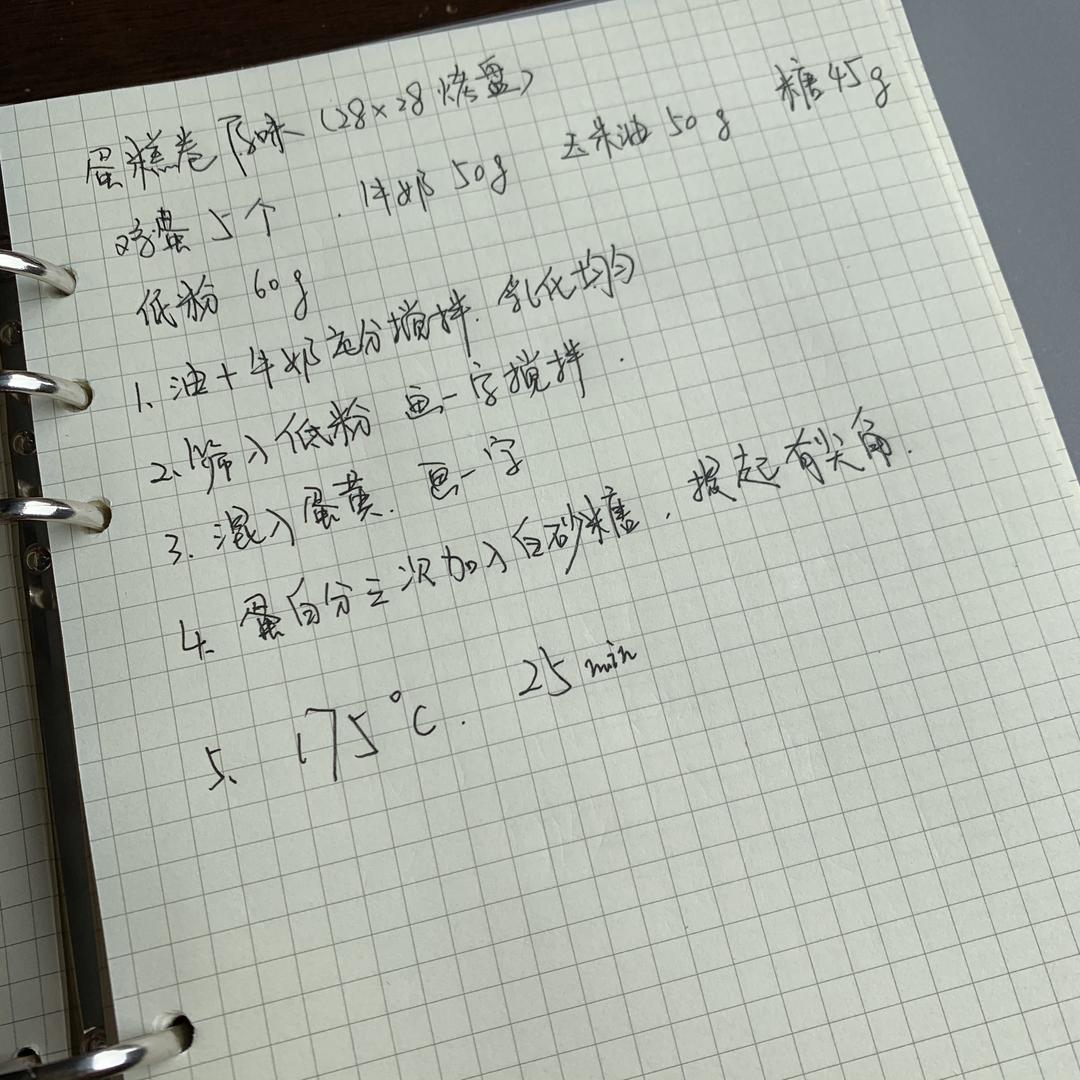 蛋糕卷 原味 (28×28烤盘)
鸡蛋 5个 . 牛奶 50g 玉米油 50g 糖45g
低粉 60g
1、油+牛奶充分搅拌. 乳化均匀
2、筛入低粉 画一字搅拌.
3. 混入蛋黄. 画一字
4. 蛋白分三次加入白砂糖. 提起有尖角.
5、175℃. 25min